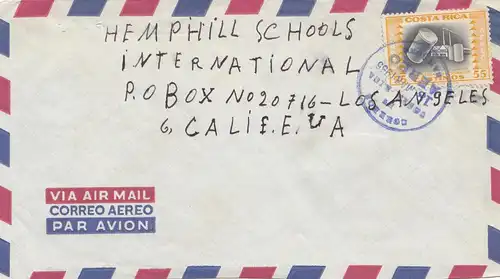 COSTA RICA
55
HEMPHILL SCHOOLS
INTERNATIONAL
P.O BOX No 20716-LOS ANGELES
6, CALIF. E. U A
VIA AIR MAIL
CORREO AEREO
PAR AVION